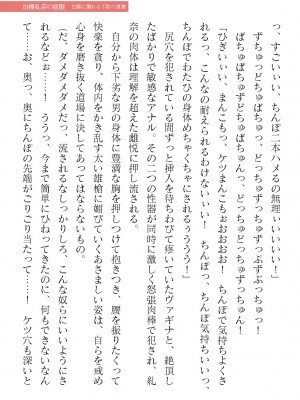 っ、すごいぃい、ちんぽ二本ハメるの無理いいいいい！」
　ずちゅっどちゅばちゅっ、どっちゅずっちゅずっぷずぶっちゅ！　ばちゅずちゅずちゅばちゅんっ、どっちゅどっちゅずちゅんっ！
「ひぎいいい、まんこもっ、ケツまんこもぉおおお！　ちんぽで気持ちよくさせっ、れっ、こんなの耐えられるわけないぃい！　ちんぽっ、ちんぽ気持ちいいっ、ちんぽでわたひの身体めちゃくちゃにされるぅううう！」
　尻穴を犯されている間ずっと挿入を待ちわびて疼いていたヴァギナと、絶頂したばかりで敏感なアナル。その二つの性器が同時に激しく怒張肉棒で犯され、糺奈の肉体は理解を超えた雌悦に押し流される。
　自分から下劣な男の身体に豊満な胸を押しつけて抱きつき、腰を振りたくって快楽を貪り、体内をかき乱す太い雄槍に媚びていくあさましい姿は、自らを戒め心身を磨き抜く道場に決してあってはならないもの。
「だ、ダメダメダメだっ、流されるなしっかりしろ、こんな奴らにいいようにされてるなんて……！　ううっ、今まで簡単にひねってきたのに、何もできないなんて……お、奥っ、奥にちんぽの先端がごりごり当たって……　ケツ穴も深いと